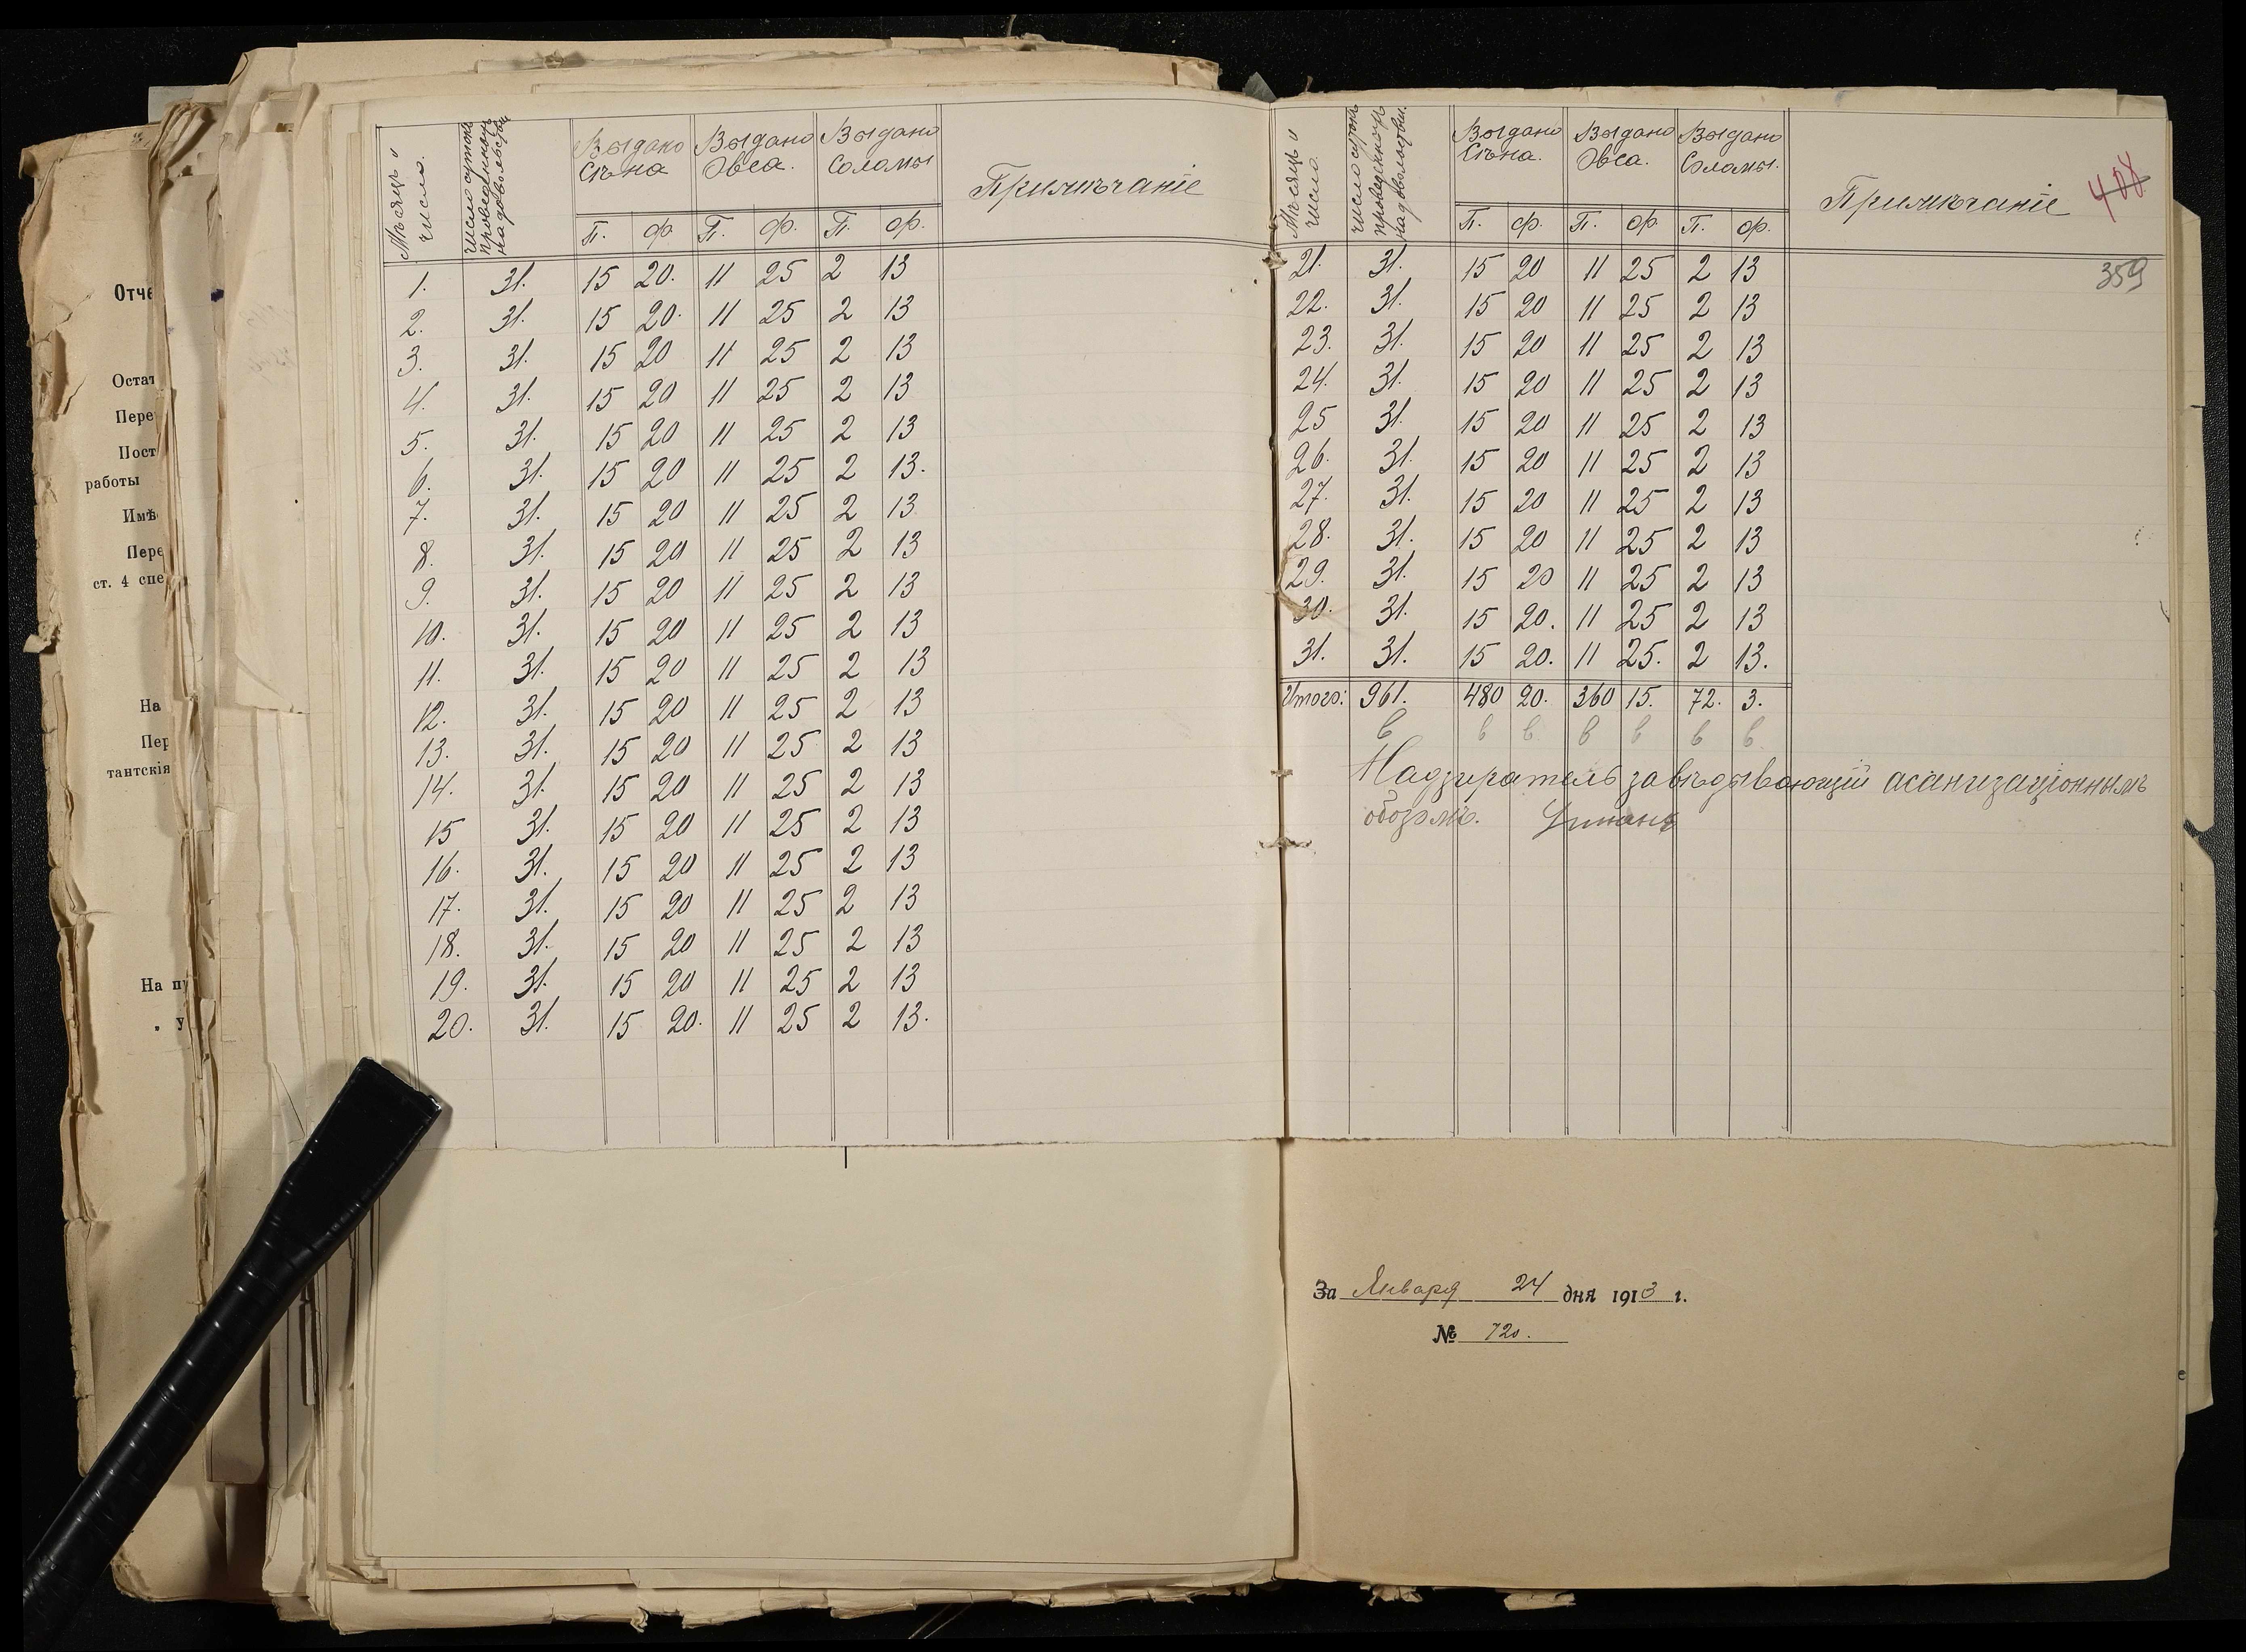 Мѣсяцъ и число. число сутокъ проведенныхъ на довольствіи Выдано Сѣна Выдано Овса. Выдано Соломы Примѣчаніе
П. ф. П. ф. П. ф.
1. 31. 15 20. 11 25 2 13
2. 31. 15 20. 11 25 2 13
3. 31. 15 20 11 25 2 13
4. 31. 15 20 11 25 2 13
5. 31. 15 20 11 25 2 13
6. 31. 15 20 11 25 2 13.
7. 31. 15 20 11 25 2 13
8. 31. 15 20 11 25 2 13
9. 31. 15 20 11 25 2 13
10. 31. 15 20 11 25 2 13
11. 31. 15 20 11 25 2 13
12. 31. 15 20 11 25 2 13
13. 31. 15 20 11 25 2 13
14. 31. 15 20 11 25 2 13
15 31. 15 20 11 25 2 13
16. 31. 15 20 11 25 2 13
17. 31. 15 20 11 25 2 13
18. 31. 15 20 11 25 2 13
19. 31. 15 20 11 25 2 13
20. 31. 15 20. 11 25 2 13.
Мѣсяцъ и число. число сутокъ проведенныхъ на довольствіи. Выдано Сѣна. Выдано Овса. Выдано Соломы. Примѣчаніе
408
П. ф. П. ф. П. ф.
359
21. 31. 15 20 11 25 2 13
22. 31. 15 20 11 25 2 13
23. 31. 15 20 11 25 2 13
24. 31. 15 20 11 25 2 13
25 31. 15 20 11 25 2 13
26. 31. 15 20 11 25 2 13
27. 31. 15 20 11 25 2 13
28. 31. 15 20 11 25 2 13
29. 31. 15 20 11 25 2 13
30. 31. 15 20. 11 25 2 13
31. 31. 15 20. 11 25. 2 13.
Итого: 961. 480 20. 360 15. 72. 3.
в в в в в в в
Надзиратель завѣдывающій асанизаціоннымъ
обозомъ.
За Января 24 дня 1913 г.
№ 720.
Отче
Остат
Пере
Пост
работы
Имѣ
Пере
ст. 4 спе
На
Пер
тантскія
На п
„ у